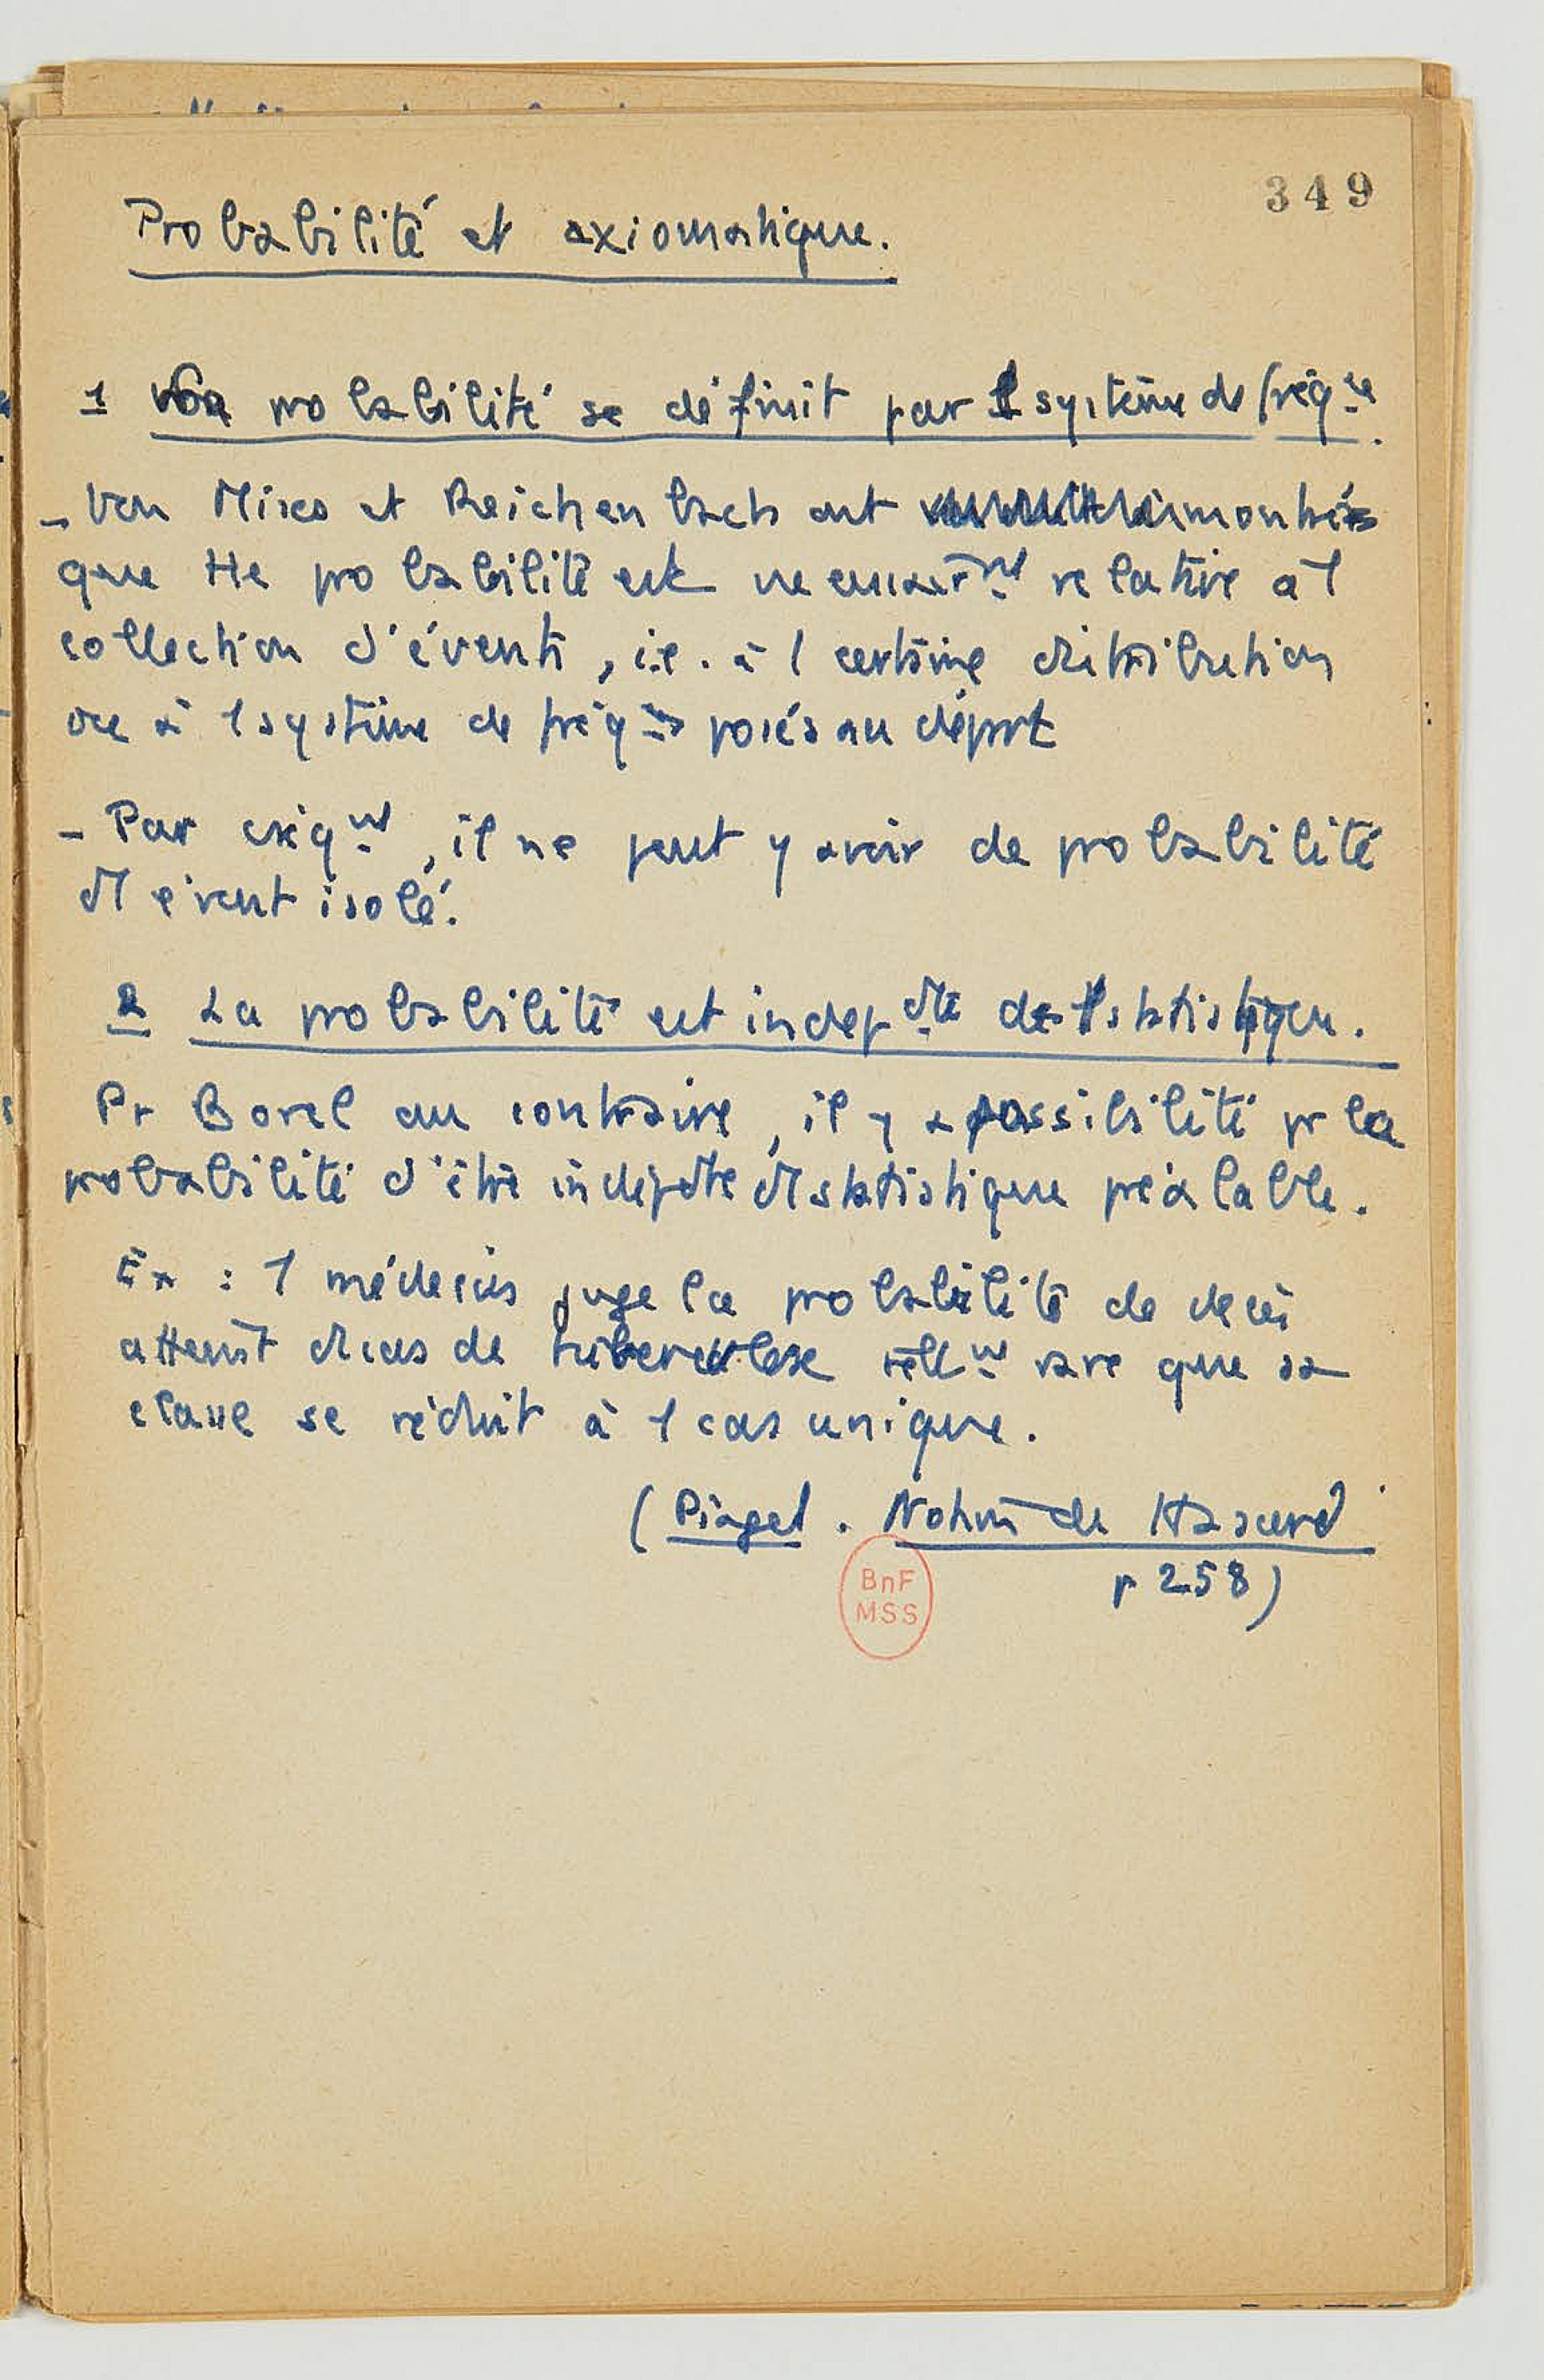 349
Probabilité et axiomatique.
1 La probabilité se définit par 1 système de fréq ce.
- Von Mises et Reichenbach ont montré
que tte probabilité est nécessairmt relative à 1
collection d'évents, i.e. à 1 certaine distribution
ou à 1 système de fréq ces posés au départ
- Par cséqnt, il ne peut y avoir de probabilité
d'1 évent isolé.
2 La probabilité est indepdte de 1 statistique.
Pr Borel au contraire, il y a possibilité pr la
probabilité d'être indépdte d'1 statistique préalable.
Ex : 1 médecin juge la probabilité de décès
attenant d'1 cas de tuberculose rellnt rare que sa
classe se réduit à 1 cas unique.
(Piaget. Notion de Hasard
p 258)
BnF
MSS